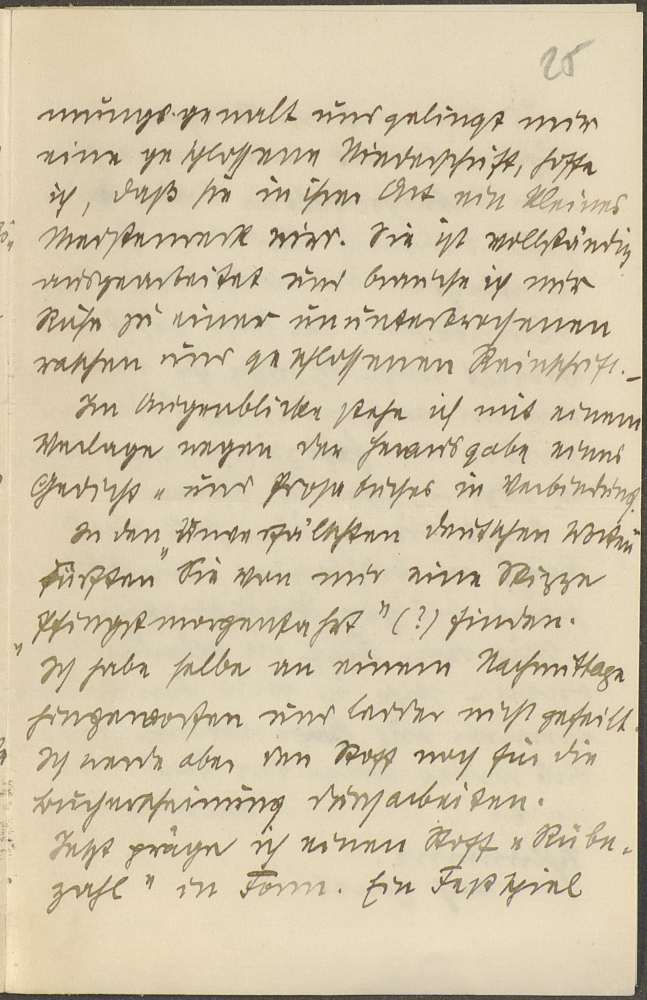 25
mungsgewalt und gelingt mir
eine geschlossene Niederschrift, hoffe
ich, daß sie in ihrer Art ein kleines
Meisterwerk wird. Sie ist vollständig
ausgearbeitet und brauche ich nur
Ruhe zu einer ununterbrochenen
raschen und geschlossenen Reinschrift. –
Im Augenblicke stehe ich mit einem
Verlage wegen der Herausgabe eines
Gedicht- und Prosabuches in Verbindung.
In den „Unverfälschten deutschen Worten"
dürften Sie von mir eine Skizze
„Pfingstmorgenfahrt" (?) finden.
Ich habe selbe an einem Nachmittage
hingeworfen und leider nicht gefeilt.
Ich werde aber den Stoff noch für die
Bucherscheinung durcharbeiten.
Jetzt präge ich einen Stoff „Rübe-
zahl" in Form. Ein Festspiel